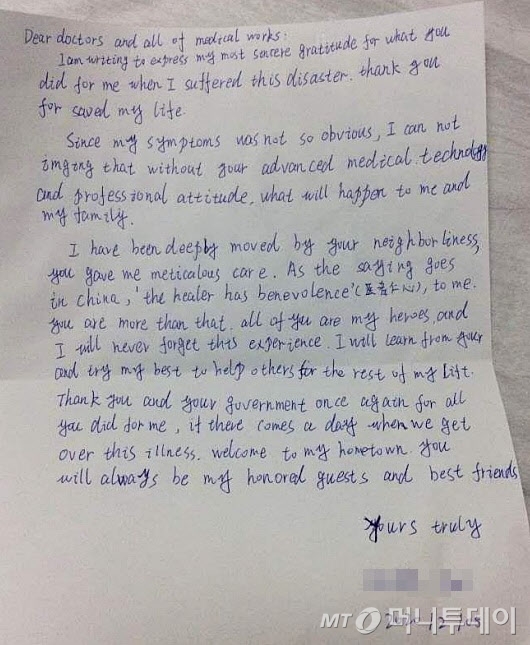 Dear doctors and all of medical works:
I am writing to express my most sincere gratitude for what you
did for me when I suffered this disaster. thank you
for saved my life.
Since my symptoms was not so obvious, I can not
imging that without your advanced medical technology
and professional attitude. what will happen to me and
my family.
I have been deeply moved by your neighborliness,
you gave me meticalous care. As the saying goes
in china, 'the healer has benevolence' (医者仁心), to me.
you are more than that. all of you are my heroes. and
I will never forget this experience. I will learn from your
and try my best to help others for the rest of my lift.
Thank you and your government once again for all
you did for me, if there comes a day when we get
over this illness. welcome to my hometown. you
will always be my honored guests and best friends
yours truly
MT 머니투데이